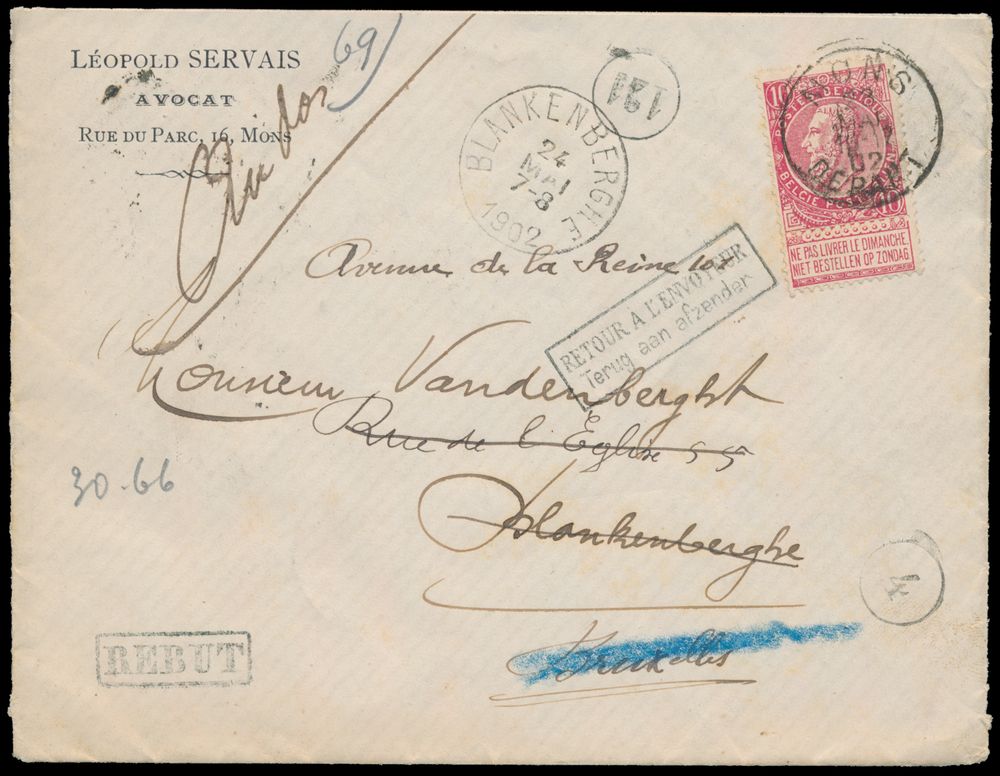 LÉOPOLD SERVAIS
AVOCAT
RUE DU PARC, 16, MONS
69
BLANKENBERGHE
24
MAI
7-8
1902
121
MONS
02
DEPART
10
POSTES BELGIQUE
BELGIE
10
NE PAS LIVRER LE DIMANCHE
NIET BESTELLEN OP ZONDAG
Avenue de la Reine
RETOUR A L'ENVOYEUR
Terug aan afzender
Monsieur Vandenberght
Rue de l'Église 55
Blankenberghe
30-66
4
Bruxelles
REBUT